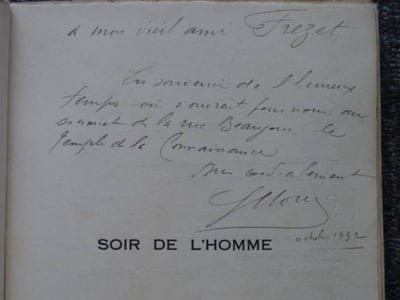 à mon vieil ami Frezet
En souvenir de l'heureux
temps où s'ouvrait pour nous, au
sommet de la rue Beaujon, le
temple de la Connaissance
Bien cordialement
SOIR DE L'HOMME
octobre 1932